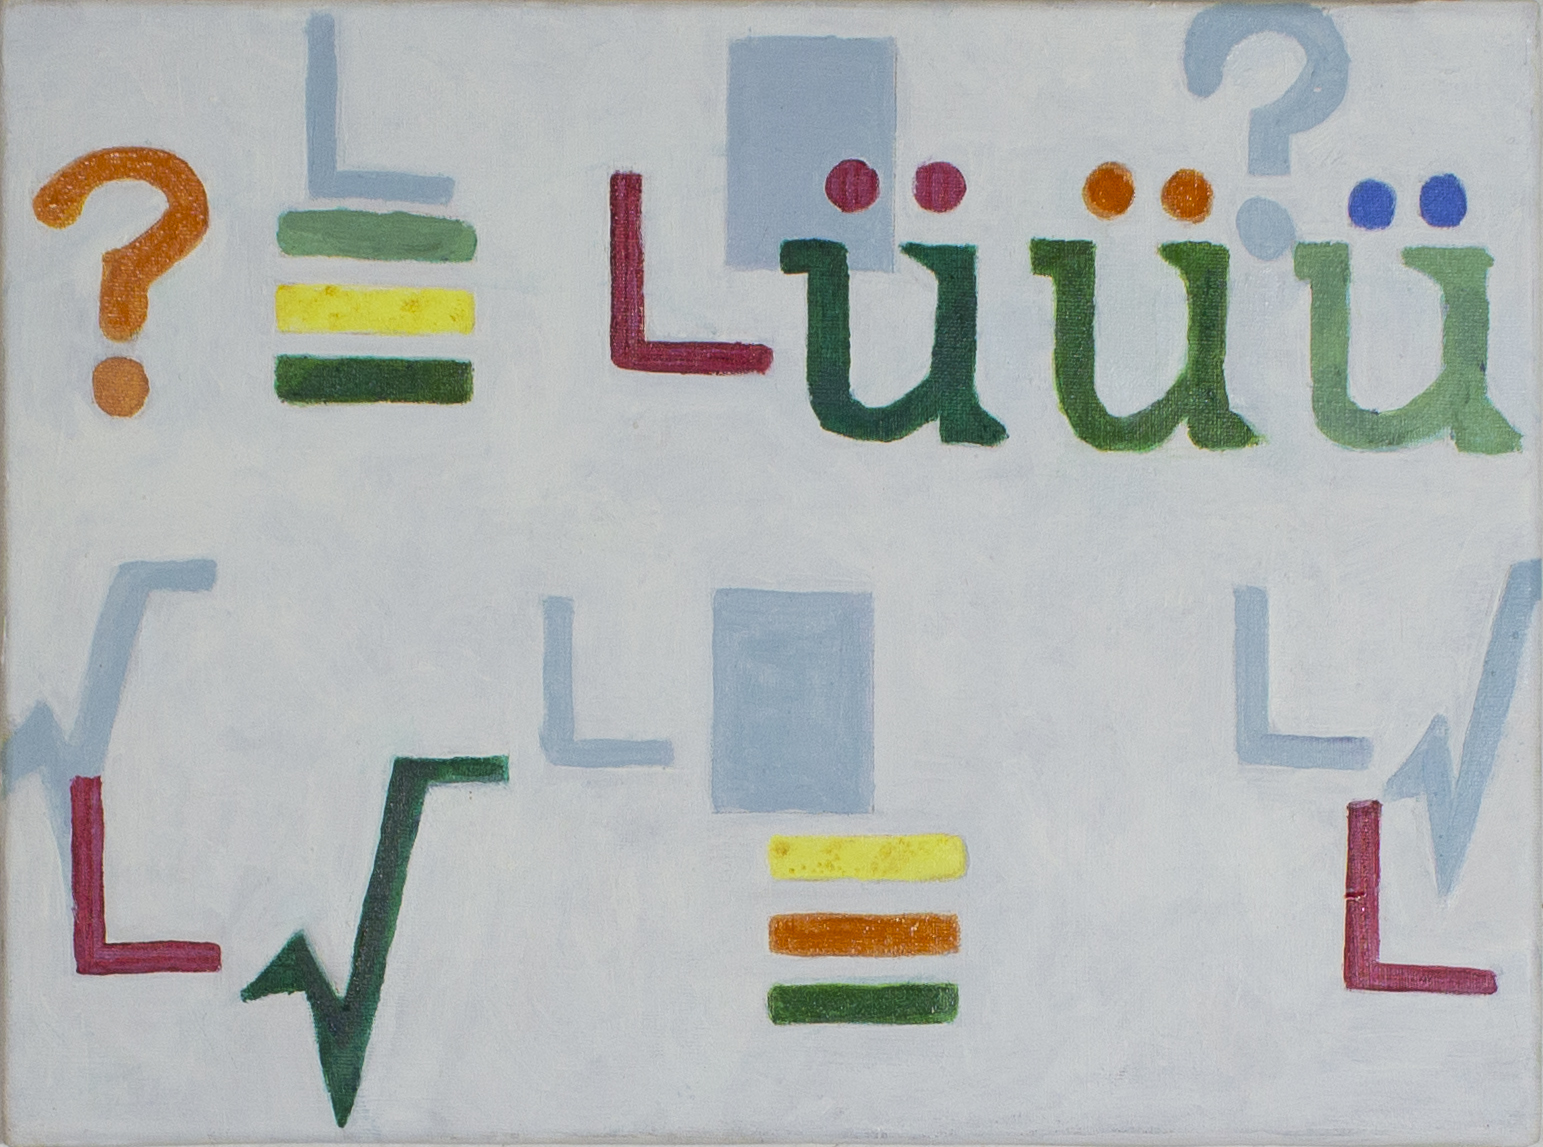 L ?
? ≡ L ü ü ü
√ L L √
L √ ≡ L